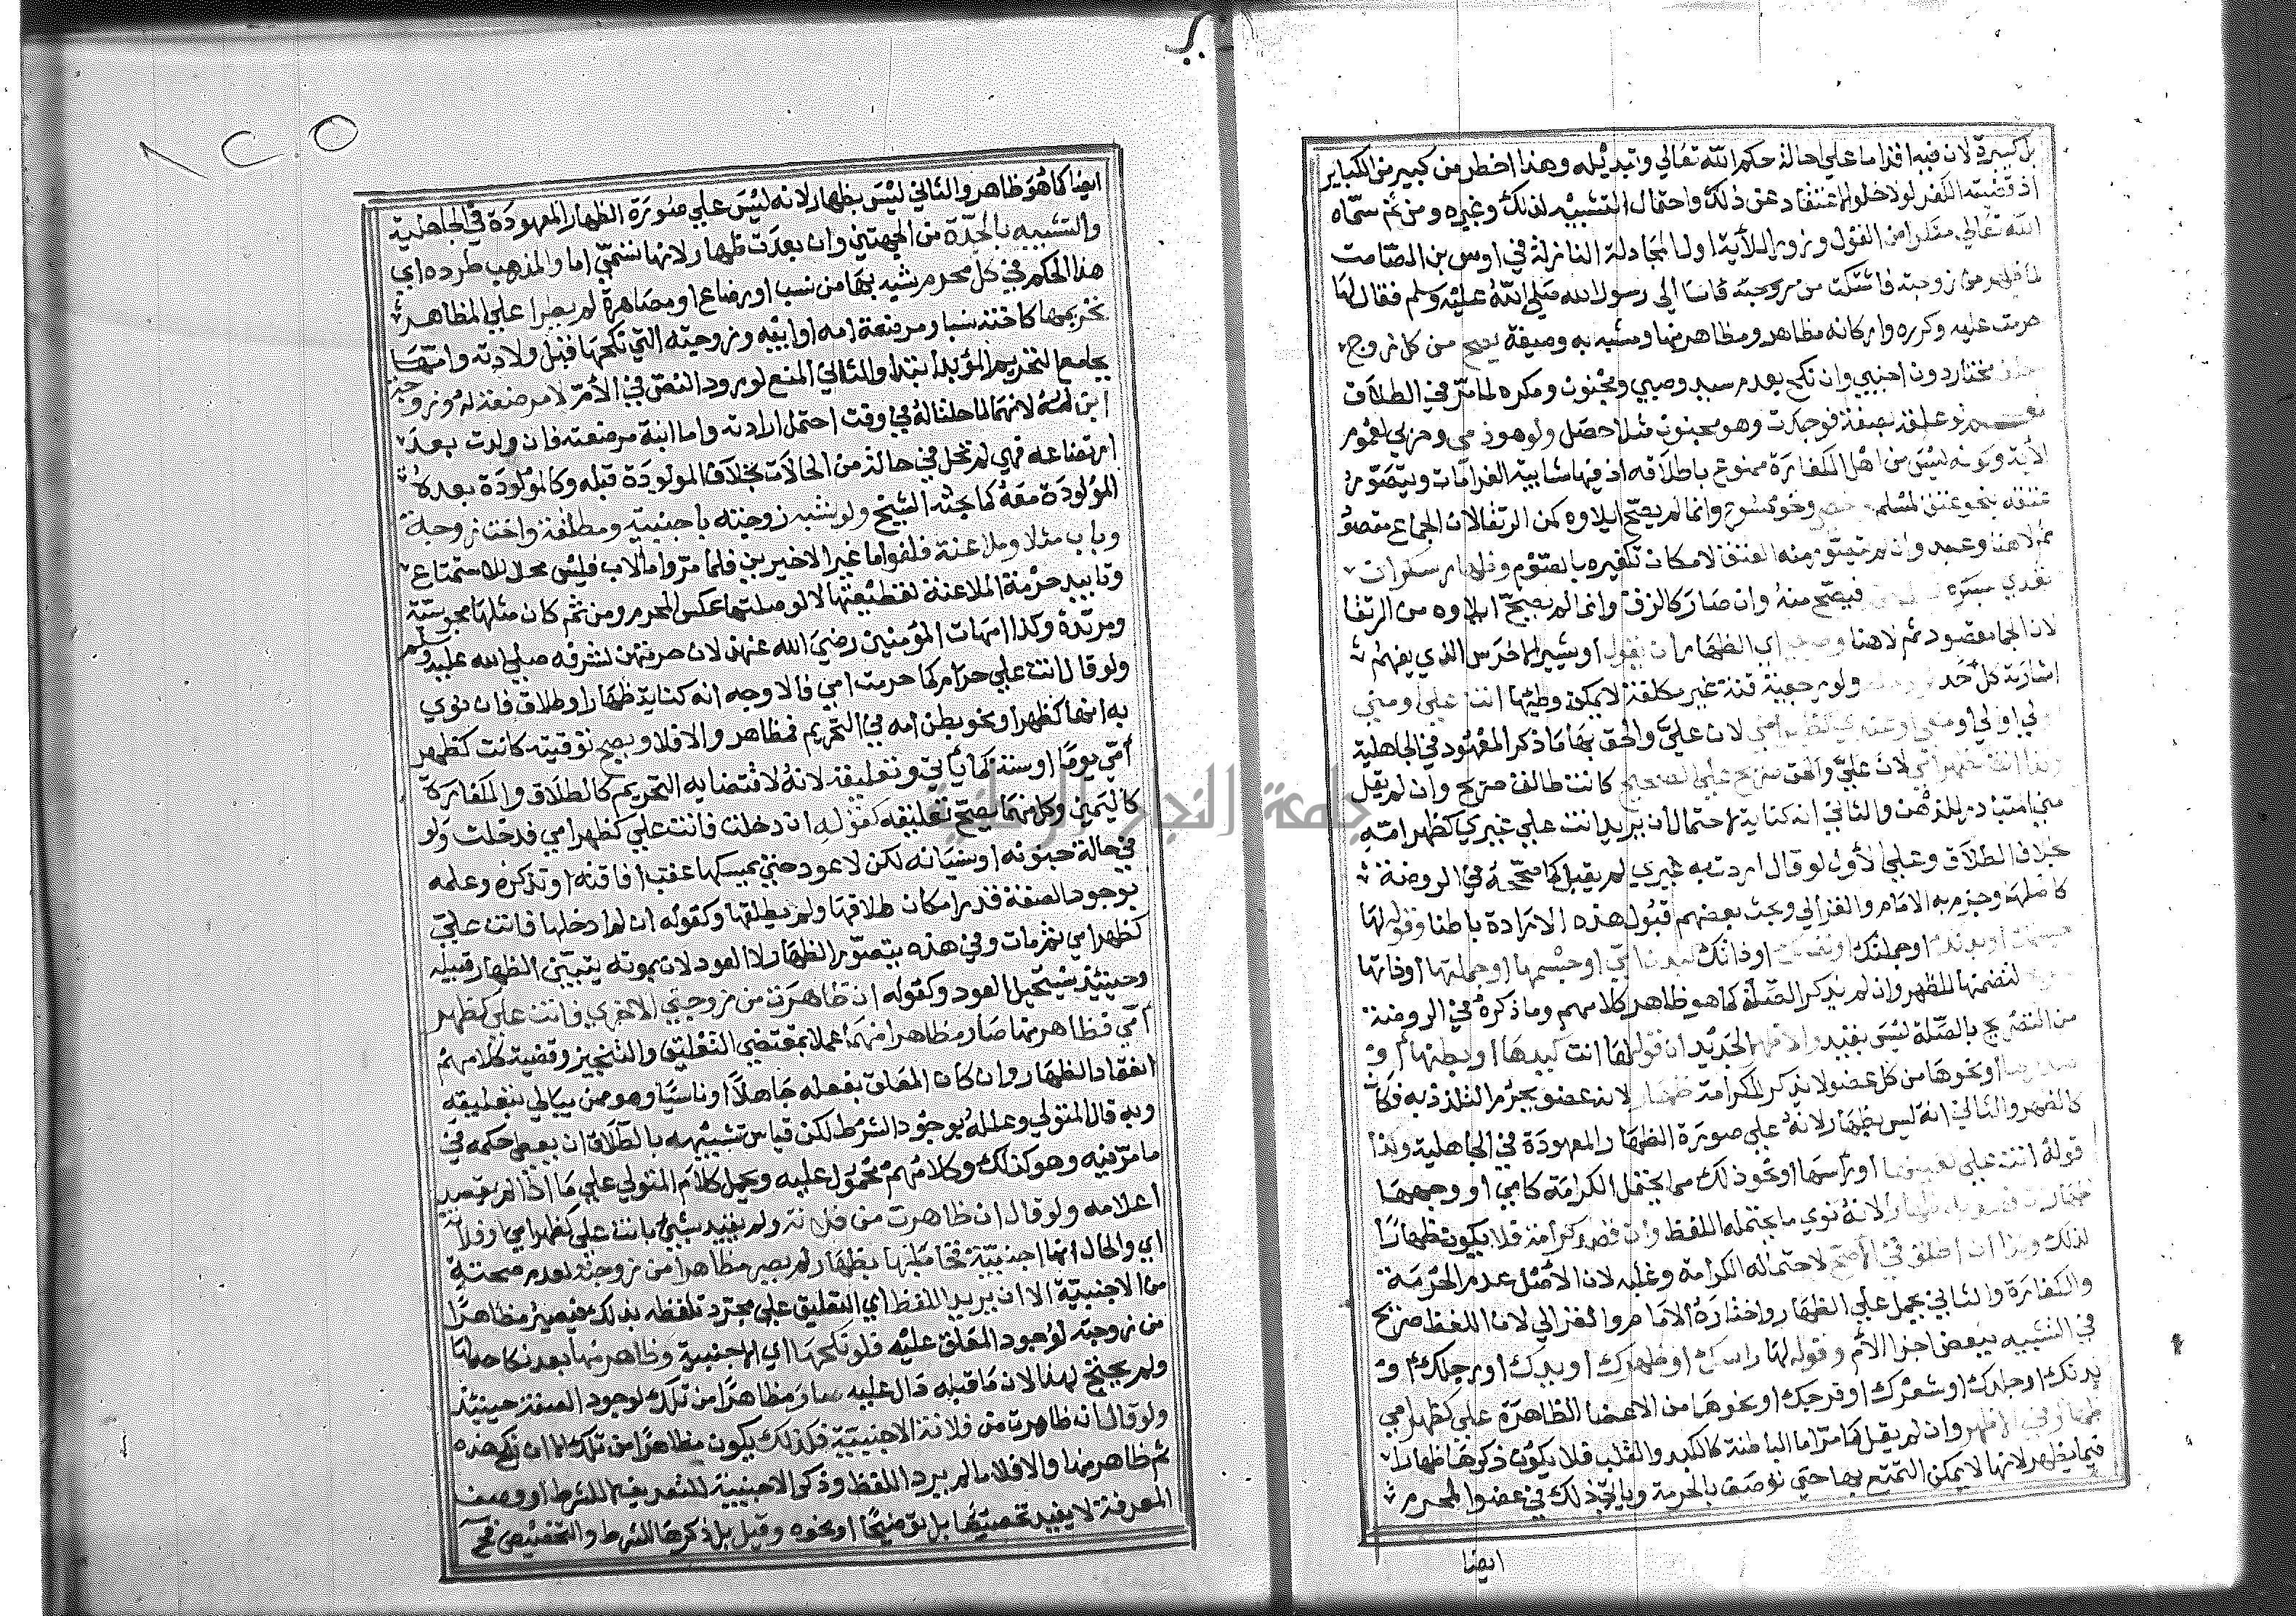 بل كبيرة لان فيه اقداما علي احالة حكم الله تعالي وتبديله وهذا اخطر من كبير من الكباير
اذ قضيته الكفر لولا خلو الاعتقاد عن ذلك واحتمال التشبيه لذلك وغيره ومن ثم سماه
الله تعالي منكرا من القول وزورا للآية اول المجادلة النازلة في اوس بن الصامت
لما ظاهر من زوجته فاشتكت من زوجته فاتتا الي رسول الله صلي الله عليه وسلم فقال لها
حرمت عليه وكرره واركانه مظاهر ومظاهر منها ومشبه به وصيغة يصح من كل زوج
مكلف مختار دون اجنبي وان نكح بعد وسيد وصبي ومجنون ومكره لما مر في الطلاق
نعم لو علقه بصفة فوجدت وهو مجنون مثلا حصل ولو هو ذمي وحربي لعموم
الآية وكونه ليس من اهل الكفارة ممنوع باطلاقه اذ فيها شايبة الغرامات ويتصور
عتقه بنحو عتق لمسلم وخصي ونحو ممسوح وانما لم يصح ايلاوه كمن الرتقا لان الجماع مقصود
ثم لا هنا وعبد وان لم يتصور منه العتق لامكان تكفيره بالصوم وظهار سكران
تعدي بسكره فيصح منه وان صار كالزق وانما لم يصح ايلاوه من الرتقا
لان الجماع مقصود ثم لا هنا وصريحه اي الظهار ان يقول او يشير الاخرس الذي يفهم
اشارته كل احد لزوجته ولو رجعية قنة غير مكلفة لا يمكن وطئها انت علي ومني
ولي او الي او معي او عندي كظهر امي لان علي والحق بها ما ذكر المعهود في الجاهلية
وكذا انت كظهر امي لان علي والحق صريح علي الصحيح كانت طالق صريح وان لم يقل
مني لتبادره للذهن والثاني انه كناية لاحتمال ان يريد انت علي غيري كظهر امه
بخلاف الطلاق وعلي الاول لو قال اردت به غيري لم يقبل كما صححه في الروضة
كاصلها وجزم به الامام والغزالي وبحث بعضهم قبول هذه الارادة باطنا وقوله لها
جسمك او بدنك او جملتك او نفسك او ذاتك كبدن امي او جسمها او جملتها او ذاتها
صريح لتضمنها للظهر وان لم يذكر الصلة كما هو ظاهر كلامهم وما ذكره في الروضة
من التصريح بالصلة ليس بقيد والاظهر الجديد ان قوله لها انت كيدها او بطنها او
صدرها او نحوها من كل عضو لا يذكر للكرامة ظهار لانه عضو يحرم التلذذ به فكان
كالظهر والثاني انه ليس بظهار لانه علي صورة الظهار المعهودة في الجاهلية وكذا
قوله انت علي كعينها او راسها او نحو ذلك مما يحتمل الكرامة كامي او روحها
ظهار ان قصد به ظهارا لانه نوي ما يحتمله اللفظ وان قصد كرامة فلا يكون ظهارا
لذلك وكذا ان اطلق في الاصح لاحتماله الكرامة وغلب لان الاصل عدم الحرمة
والكفارة والثاني يحمل علي الظهار واختاره الامام والغزالي لان اللفظ صريح
في التشبيه ببعض اجزا الام وقوله لها راسك او ظهرك او يدك او رجلك او
بدنك او جلدك او شعرك او فرجك او نحوها من الاعضا الظاهرة علي كظهر امي
ظهار في الاظهر وان لم يقل كما مر اما الباطنة كالكبد والقلب فلا يكون ذكرها ظهارا
فيما يظهر لانها لا يمكن التمتع بها حتي توصف بالحرمة وياتي ذلك في عضو المحرم
ايضا
١٢٥
ايضا كما هو ظاهر والثاني ليس بظهار لانه ليس علي صورة الظهار المعهودة في الجاهلية
والتشبيه بالجدة من الجهتين وان بعدت ظهار لانها تسمي اما والمذهب طرده اي
هذا الحكم في كل محرم شبه بها من نسب او رضاع او مصاهرة لم يطرا علي المظاهر
تحريمها كاخته نسبا ومرضعة امه او ابيه وزوجته التي نكحها قبل ولادته وامها
بجامع التحريم المؤبد ابتدا والثاني المنع لورود النص في الام لا مرضعة له وزوجة
ابن له لانهما لما حلتا له في وقت احتمل ارادته واما ابنة مرضعته فان ولدت بعد
ارتضاعه فهي لم تحل في حالة من الحالات بخلاف المولودة قبله وكالمولودة بعده
المولودة معه كما بحثه الشيخ ولو شبه زوجته باجنبية ومطلقة واخت زوجة
وباب مثلا وملاعنة فلغو اما غير الاخيرين فلما مر واما الاب فليس محلا للاستمتاع
وتابيد حرمة الملاعنة لقطيعتها لا لوصلتها عكس المحرم ومن ثم كان مثلها مجوسية
ومرتدة وكذا امهات المؤمنين رضي الله عنهن لان حرمتهن لشرفه صلي الله عليه وسلم
ولو قال انت علي حرام كما حرمت امي فالاوجه انه كناية ظهار او طلاق فان نوي
به انها كظهر او نحو بطن امه في التحريم فمظاهر والا فلا ويصح توقيته كانت كظهر
امي يوما او سنة كما ياتي وتعليقه لانه لاقتضايه التحريم كالطلاق والكفارة
كاليمين وكل منهما يصح تعليقه كقوله ان دخلت فانت علي كظهر امي فدخلت ولو
في حالة جنونه او نسيانه لكن لا عود حتي يمسكها عقب افاقته او تذكره وعلمه
بوجود الصفة قدر امكان طلاقها ولم يطلقها وكقوله ان لم ادخلها فانت علي
كظهر امي ثم مات وفي هذه يتصور الظهار لا العود لان بموته يتبين الظهار قبيله
وحينئذ يستحيل العود وكقوله ان ظاهرت من زوجتي الاخري فانت علي كظهر
امي فظاهر منها صار مظاهرا منهما عملا بمقتضي التعليق والتنجيز وقضية كلامهم
انعقاد الظهار وان كان المعلق بفعله جاهلا او ناسيا وهو ممن يبالي بتعليقه
وبه قال المتولي وعلله بوجود الشرط لكن قياس تشبيهه بالطلاق ان يعطي حكمه في
ما مر فيه وهو كذلك وكلامهم محمول عليه ويحمل كلام المتولي علي ما اذا لم يقصد
اعلامه ولو قال ان ظاهرت من فلانة ولم يقيد بشيء فانت علي كظهر امي او فلانة
اي والحال انها اجنبية فخاطبها بظهار لم يصر مظاهرا من زوجته لعدم صحته
من الاجنبية الا ان يريد اللفظ اي التعليق علي مجرد تلفظه بذلك فيصير مظاهرا
من زوجته لوجود المعلق عليه فلو نكحها اي الاجنبية وظاهر منها بعد نكاحه لها
ولم يحتج لهذا لان ما قبله دال عليه صار مظاهرا من تلك لوجود الصفة حينئذ
ولو قال ان ظاهرت من فلانة الاجنبية فكذلك يكون مظاهرا من تلك ان نكح هذه
ثم ظاهر منها والا فلا ما لم يرد اللفظ وذكر الاجنبية للتعريف لا للشرط اذ وصف
المعرفة لا يفيد تخصيصها بل توضيحا او نحوه وقيل بل ذكرها للشرط والتخصيص
جامعة النجاح الوطنية